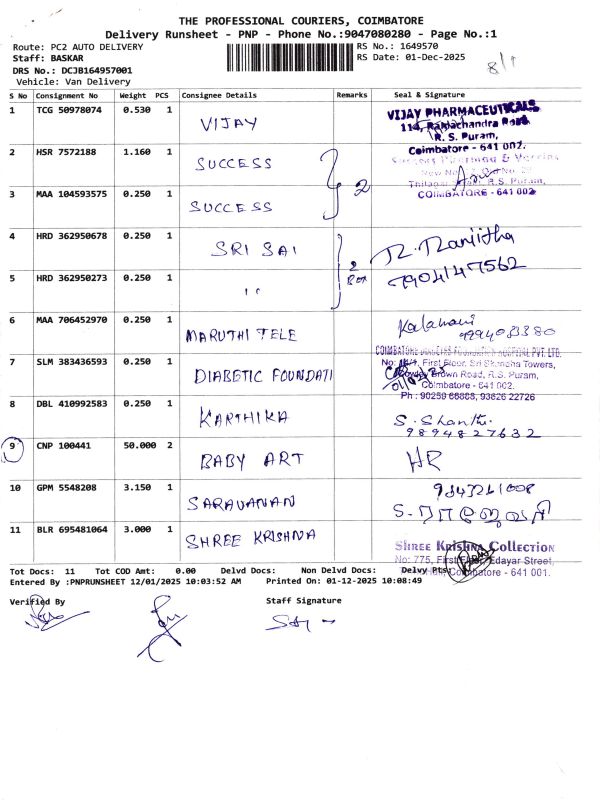 THE PROFESSIONAL COURIERS, COIMBATORE
Delivery Runsheet - PNP - Phone No.:9047080280 - Page No.:1
Route: PC2 AUTO DELIVERY
RS No.: 1649570
Staff: BASKAR
RS Date: 01-Dec-2025
DRS No.: DCJB164957001
Vehicle: Van Delivery
S No Consignment No Weight PCS Consignee Details Remarks Seal & Signature
1 TCG 50978074 0.530 1 VIJAY
VIJAY PHARMACEUTICALS
114, Ramachandra Road
R. S. Puram,
Coimbatore - 641 002.
2 HSR 7572188 1.160 1 SUCCESS
3 MAA 104593575 0.250 1 SUCCESS
2
R.S. Puram,
COIMBATORE - 641 002
4 HRD 362950678 0.250 1 SRI SAI
R. Ranjitha
7904147562
5 HRD 362950273 0.250 1 "
2
Box
6 MAA 706452970 0.250 1 MARUTHI TELE
Kalamani
7 SLM 383436593 0.250 1 DIABETIC FOUNDATI
COIMBATORE DIABETES FOUNDATION HOSPITAL PVT. LTD.
First Floor, Sri Towers,
Brown Road, R.S. Puram,
Coimbatore - 641 002.
Ph : 90259 66888, 93626 22726
8 DBL 410992583 0.250 1 KARTHIKA
S. Shanthi
9894827632
9 CNP 100441 50.000 2 BABY ART
HR
10 GPM 5548208 3.150 1 SARAVANAN
11 BLR 695481064 3.000 1 SHREE KRISHNA
SHREE KRISHNA COLLECTION
No: 775, First Edayar Street,
Coimbatore - 641 001.
Tot Docs: 11 Tot COD Amt: 0.00 Delvd Docs: Non Delvd Docs: Delvy Pts:
Entered By :PNPRUNSHEET 12/01/2025 10:03:52 AM Printed On: 01-12-2025 10:08:49
Verified By
Staff Signature